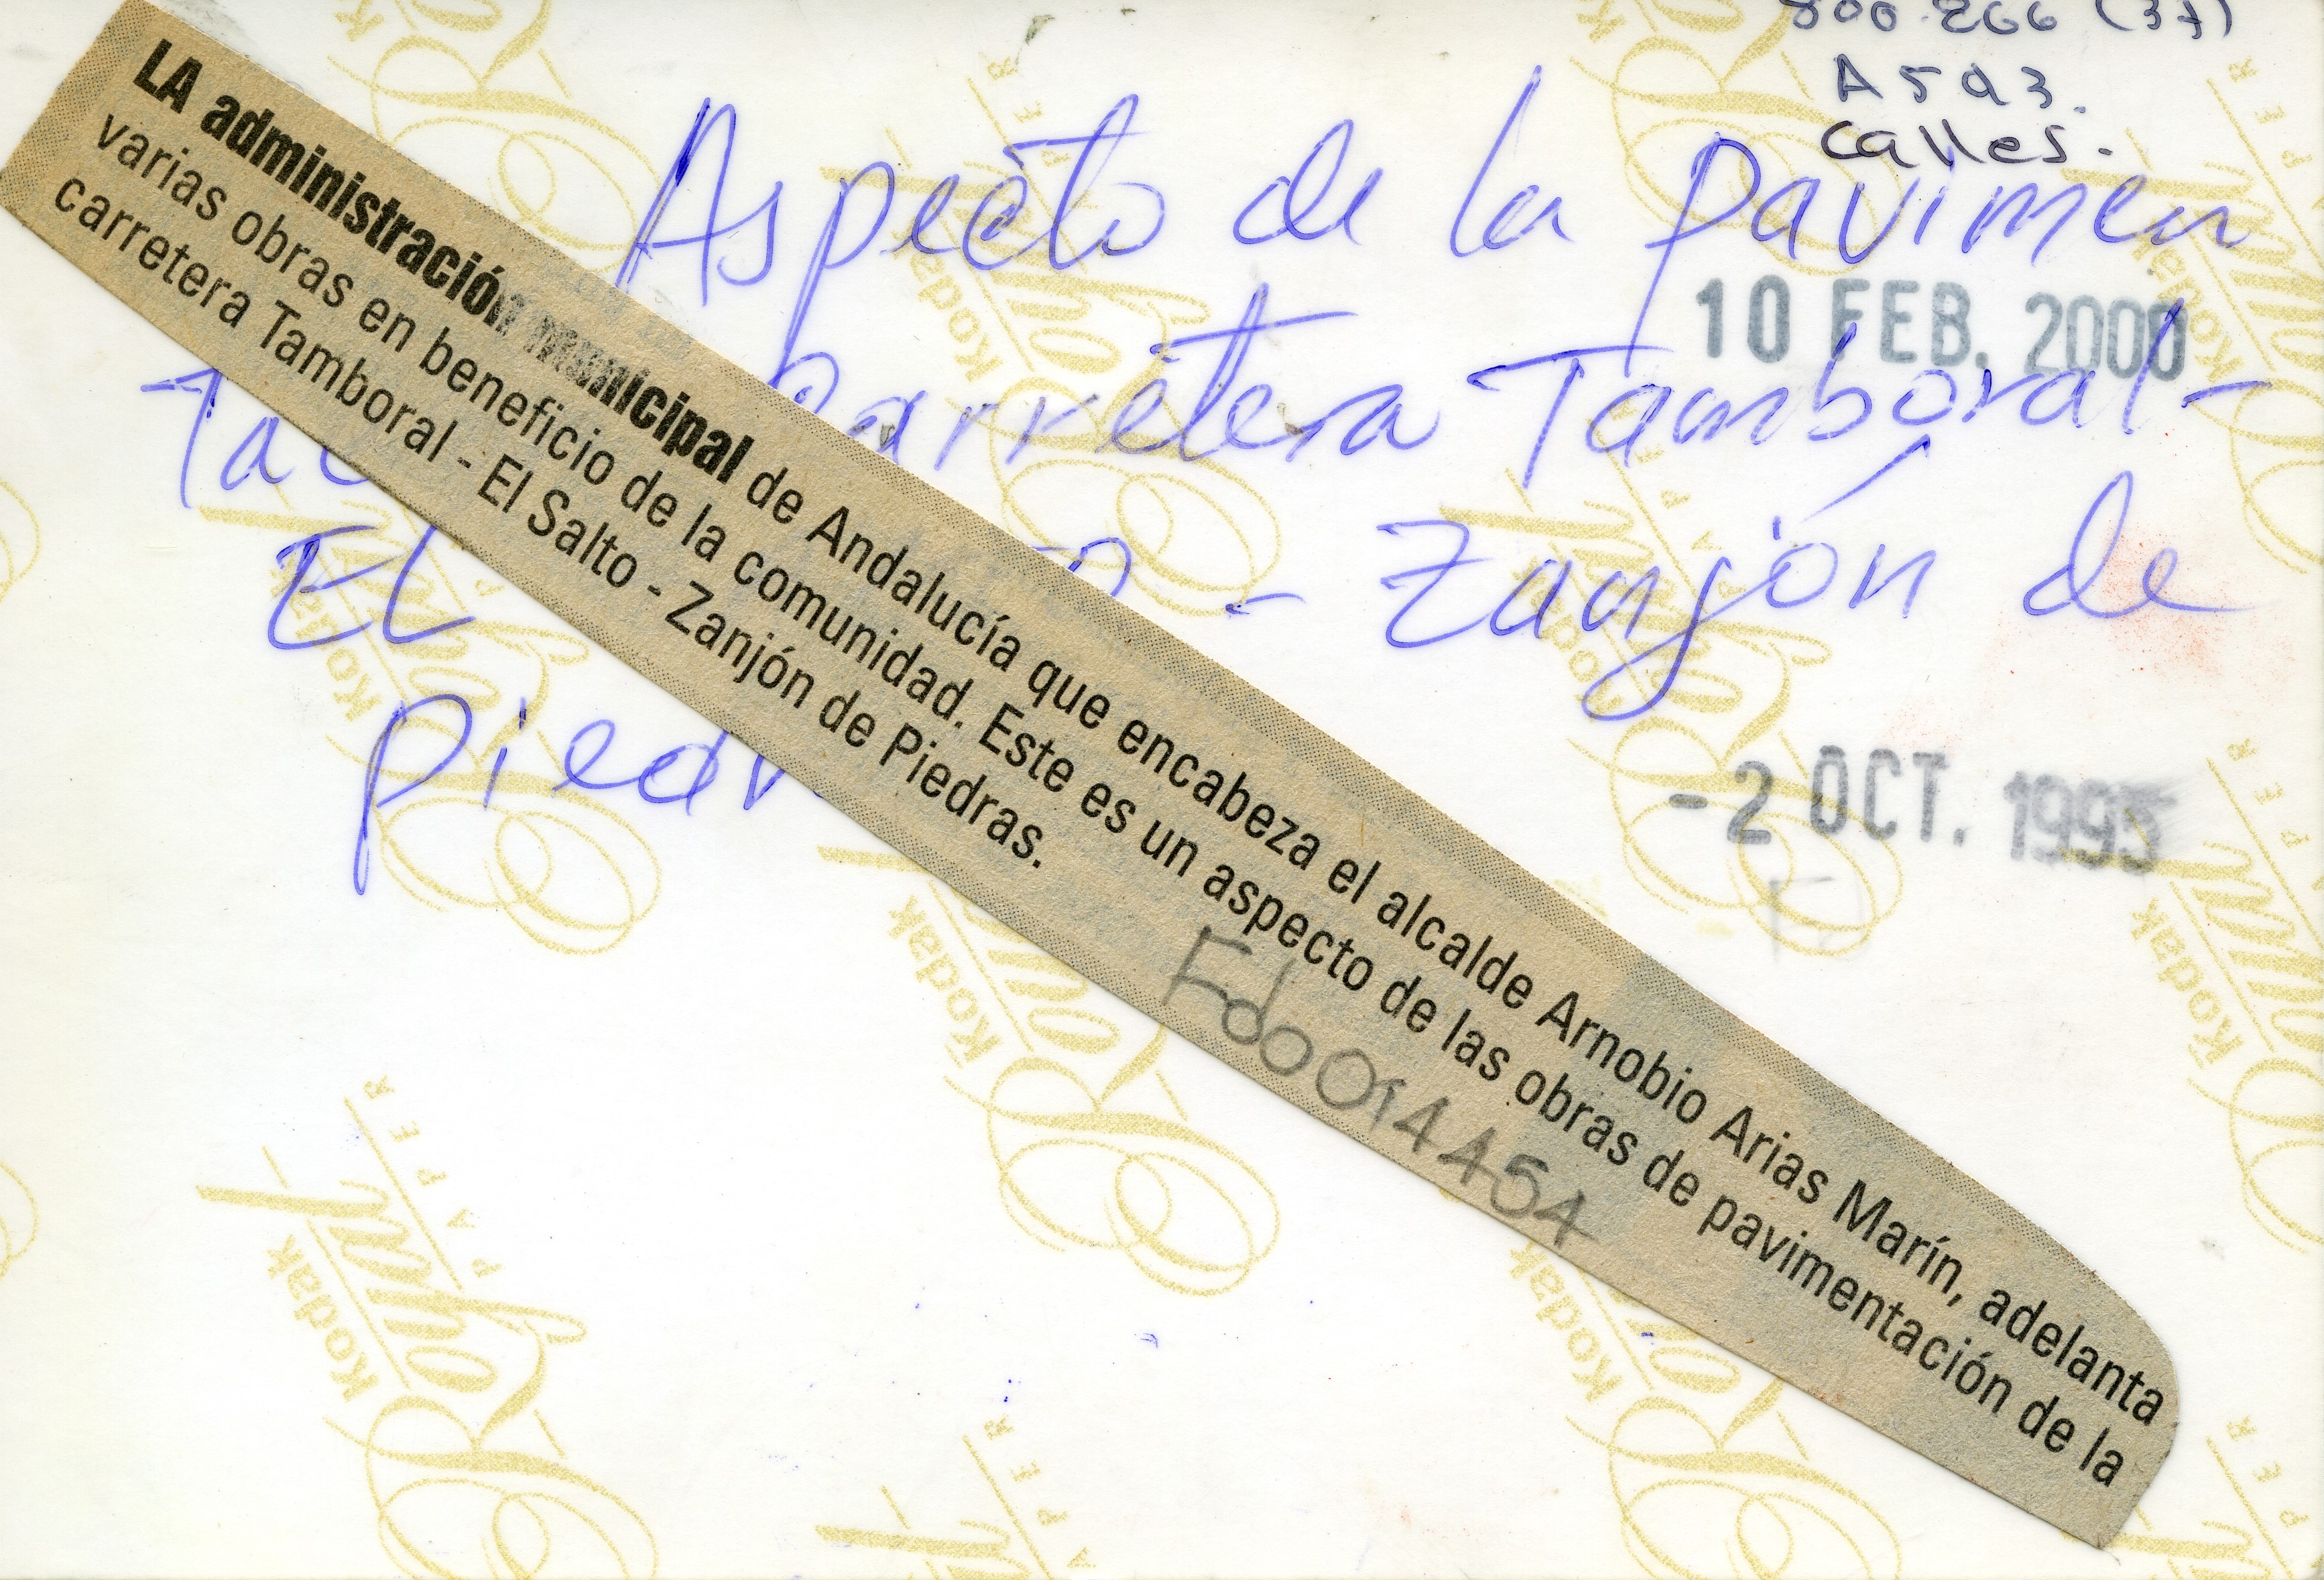 800.266 (37)
A593.
Calles.
Aspecto de la pavimen
10 FEB. 2000
Carretera Tamboral-
EL - Zanjón de
-2 OCT. 1995
LA administración municipal de Andalucía que encabeza el alcalde Arnobio Arias Marín, adelanta
varias obras en beneficio de la comunidad. Este es un aspecto de las obras de pavimentación de la
carretera Tamboral - El Salto - Zanjón de Piedras.
Fdo014454
Kodak Royal PAPER